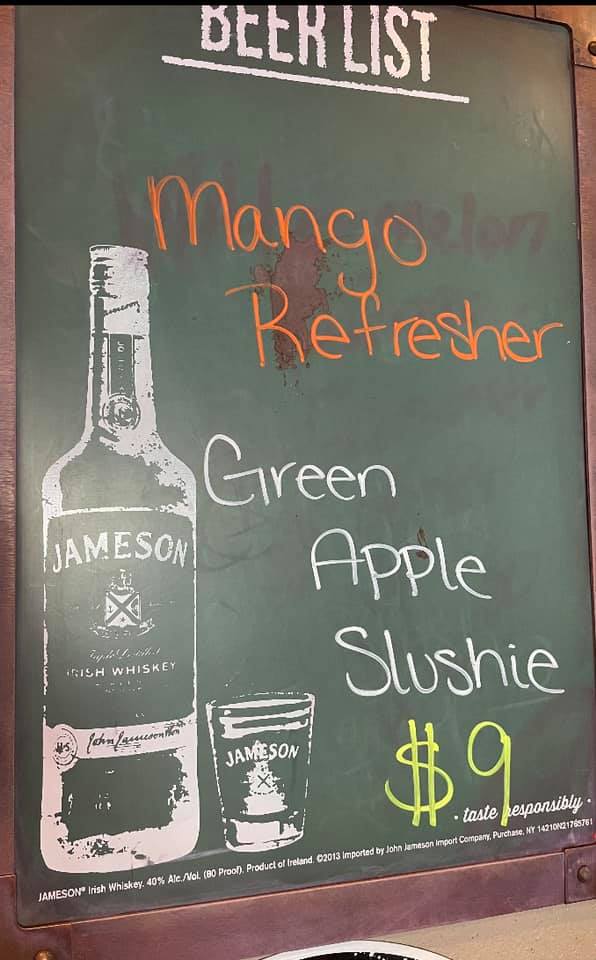 BEER LIST
Mango
Refresher
Green
Apple
Slushie
$9
JAMESON
IRISH WHISKEY
John Jameson & Son
JAMESON
· taste responsibly ·
JAMESON® Irish Whiskey. 40% Alc./Vol. (80 Proof). Product of Ireland. ©2013 Imported by John Jameson Import Company, Purchase, NY 14210N21765761